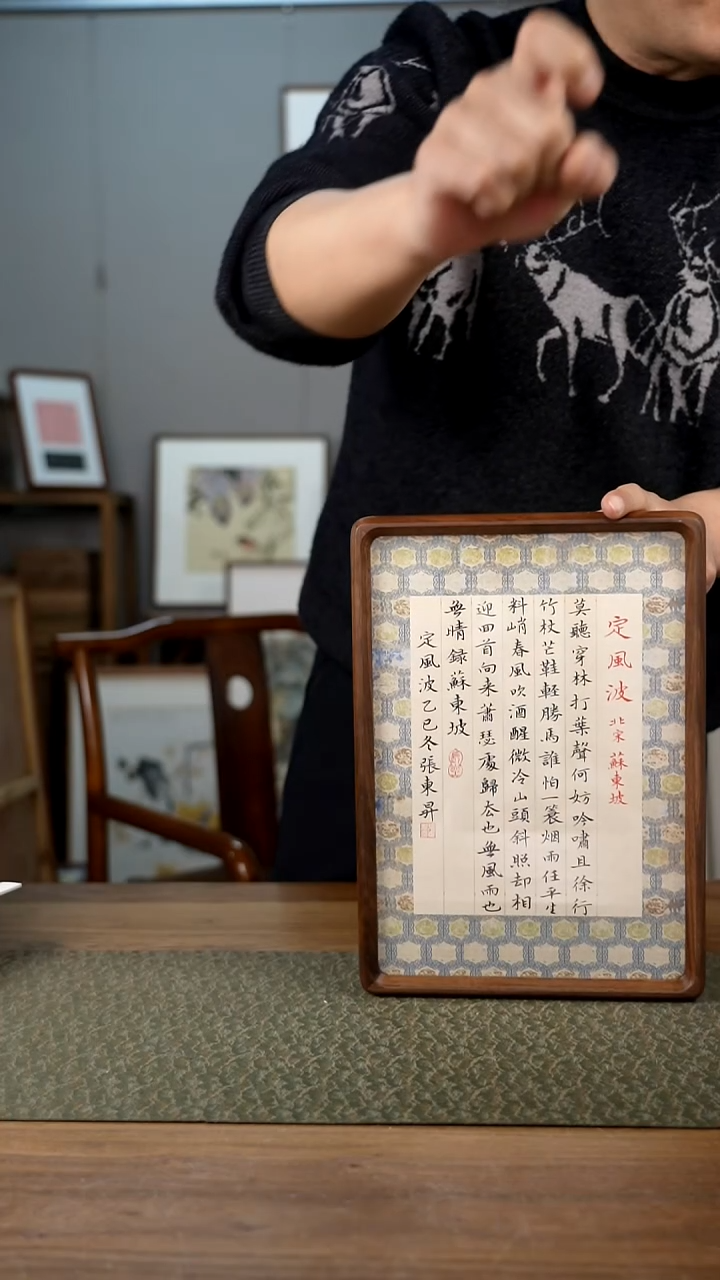 定風波 北宋 蘇東坡
莫聽穿林打葉聲何妨吟嘯且徐行
竹杖芒鞋輕勝馬誰怕一蓑烟雨任平生
料峭春風吹酒醒微冷山頭斜照却相
迎回首向来蕭瑟處歸去也無風雨也
無晴録蘇東坡
定風波乙巳冬張東昇